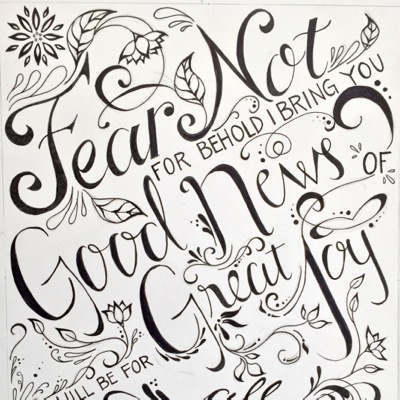 Fear Not
FOR BEHOLD I BRING YOU
Good News OF
Great Joy
WILL BE FOR
all